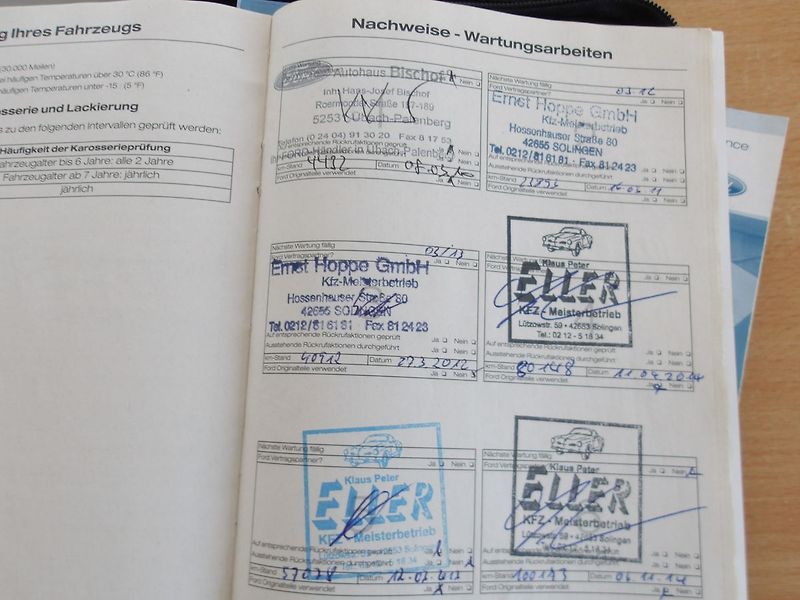 g Ihres Fahrzeugs
(30.000 Meilen)
ei häufigen Temperaturen über 30 °C (86 °F)
häufigen Temperaturen unter -15 (5 °F)
osserie und Lackierung
s zu den folgenden Intervallen geprüft werden:
Häufigkeit der Karosserieprüfung
ahrzeugalter bis 6 Jahre: alle 2 Jahre
Fahrzeugalter ab 7 Jahre: jährlich
jährlich
Nachweise - Wartungsarbeiten
Autohaus Bischof
Nein
Inh. Hans-Josef Bischof
Roermonder Straße 187-189
Übach-Palenberg
Telefon (0 24 04) 91 30 20 Fax 8 17 53
Ihr FORD-Händler in Übach-Palenberg
km-Stand 4492 Datum
Ford Originalteile verwendet Ja Nein
Nächste Wartung fällig 03.12
Ford Vertragspartner? Ja Nein
Ernst Hoppe GmbH
Kfz-Meisterbetrieb
Hossenhauser Straße 80
42655 SOLINGEN
Tel. 0212/81 61 81 Fax 81 24 23
Ausstehende Rückrufaktionen durchgeführt Ja Nein
km-Stand Datum
Ford Originalteile verwendet Ja Nein
Nächste Wartung fällig 03/13
Ford Vertragspartner? Ja Nein
Ernst Hoppe GmbH
Kfz-Meisterbetrieb
Hossenhauser Straße 80
42655 SOLINGEN
Tel. 0212/81 61 81 Fax 81 24 23
Auf entsprechende Rückrufaktionen geprüft Ja Nein
Ausstehende Rückrufaktionen durchgeführt Ja Nein
km-Stand 40912 Datum 27.3.2012
Ford Originalteile verwendet Ja Nein
Nächste Wartung fällig
Ford Vertragspartner? Ja Nein
Klaus Peter
ELLER
KFZ - Meisterbetrieb
Lützowstr. 59 - 42653 Solingen
Tel.: 02 12 - 5 18 34
Auf entsprechende Rückrufaktionen geprüft
Ausstehende Rückrufaktionen durchgeführt Ja Nein
km-Stand 80148 Datum 11.04.2014
Ford Originalteile verwendet Ja Nein
Nächste Wartung fällig
Ford Vertragspartner? Ja Nein
Klaus Peter
ELLER
KFZ - Meisterbetrieb
Auf entsprechende Rückrufaktionen geprüft Ja Nein
Ausstehende Rückrufaktionen durchgeführt Ja Nein
km-Stand 57028 Datum
Ford Originalteile verwendet Ja Nein
Nächste Wartung fällig
Ford Vertragspartner? Ja Nein
Klaus Peter
ELLER
KFZ - Meisterbetrieb
Lützowstr. 59 - 42653 Solingen
Auf entsprechende Rückrufaktionen geprüft Ja Nein
Ausstehende Rückrufaktionen durchgeführt Ja Nein
km-Stand Datum 06.11.14
Ford Originalteile verwendet Ja Nein